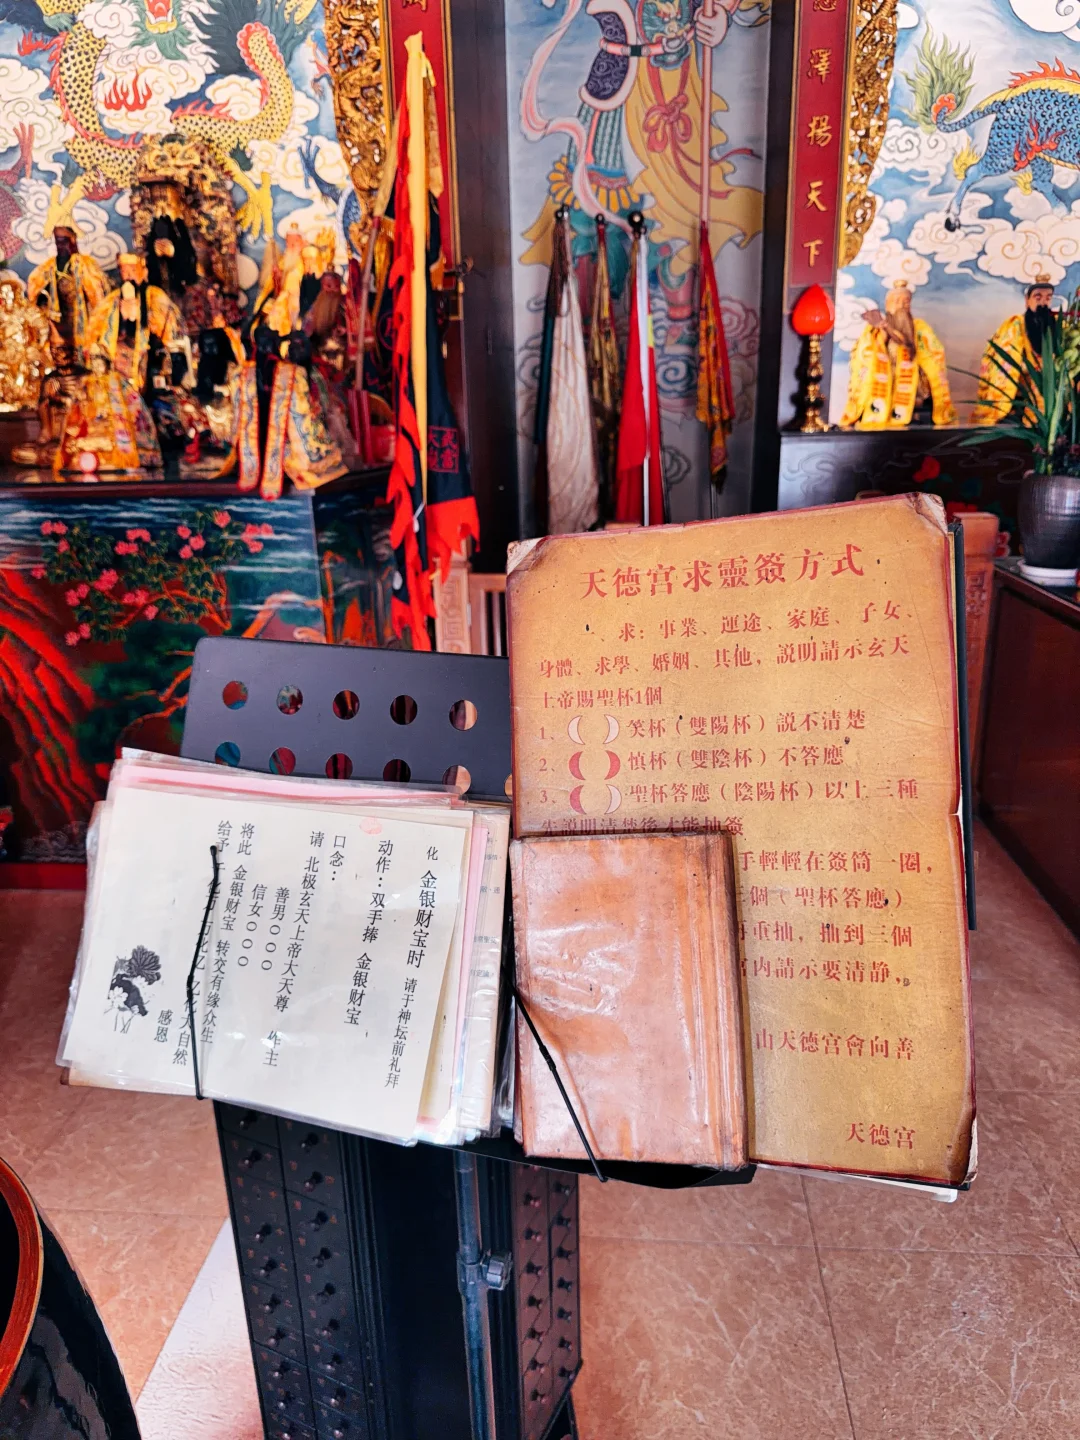 澤揚天下
天德宮求靈簽方式
一、求：事業、運途、家庭、子女、
身體、求學、婚姻、其他，説明請示玄天
上帝賜聖杯1個
1、笑杯（雙陽杯）説不清楚
2、慎杯（雙陰杯）不答應
3、聖杯答應（陰陽杯）以上三種
先説明清楚後才能抽簽
手輕輕在簽筒一圈，
個（聖杯答應）
重抽，抽到三個
宮内請示要清静，
山天德宮會向善
天德宮
化 金银财宝时 请于神坛前礼拜
动作：双手捧 金银财宝
口念：
请 北极玄天上帝大天尊 作主
善男○○○
信女○○○
将此 金银财宝 转交有缘众生
给予 千化万 万化亿 亿化大自然
感恩